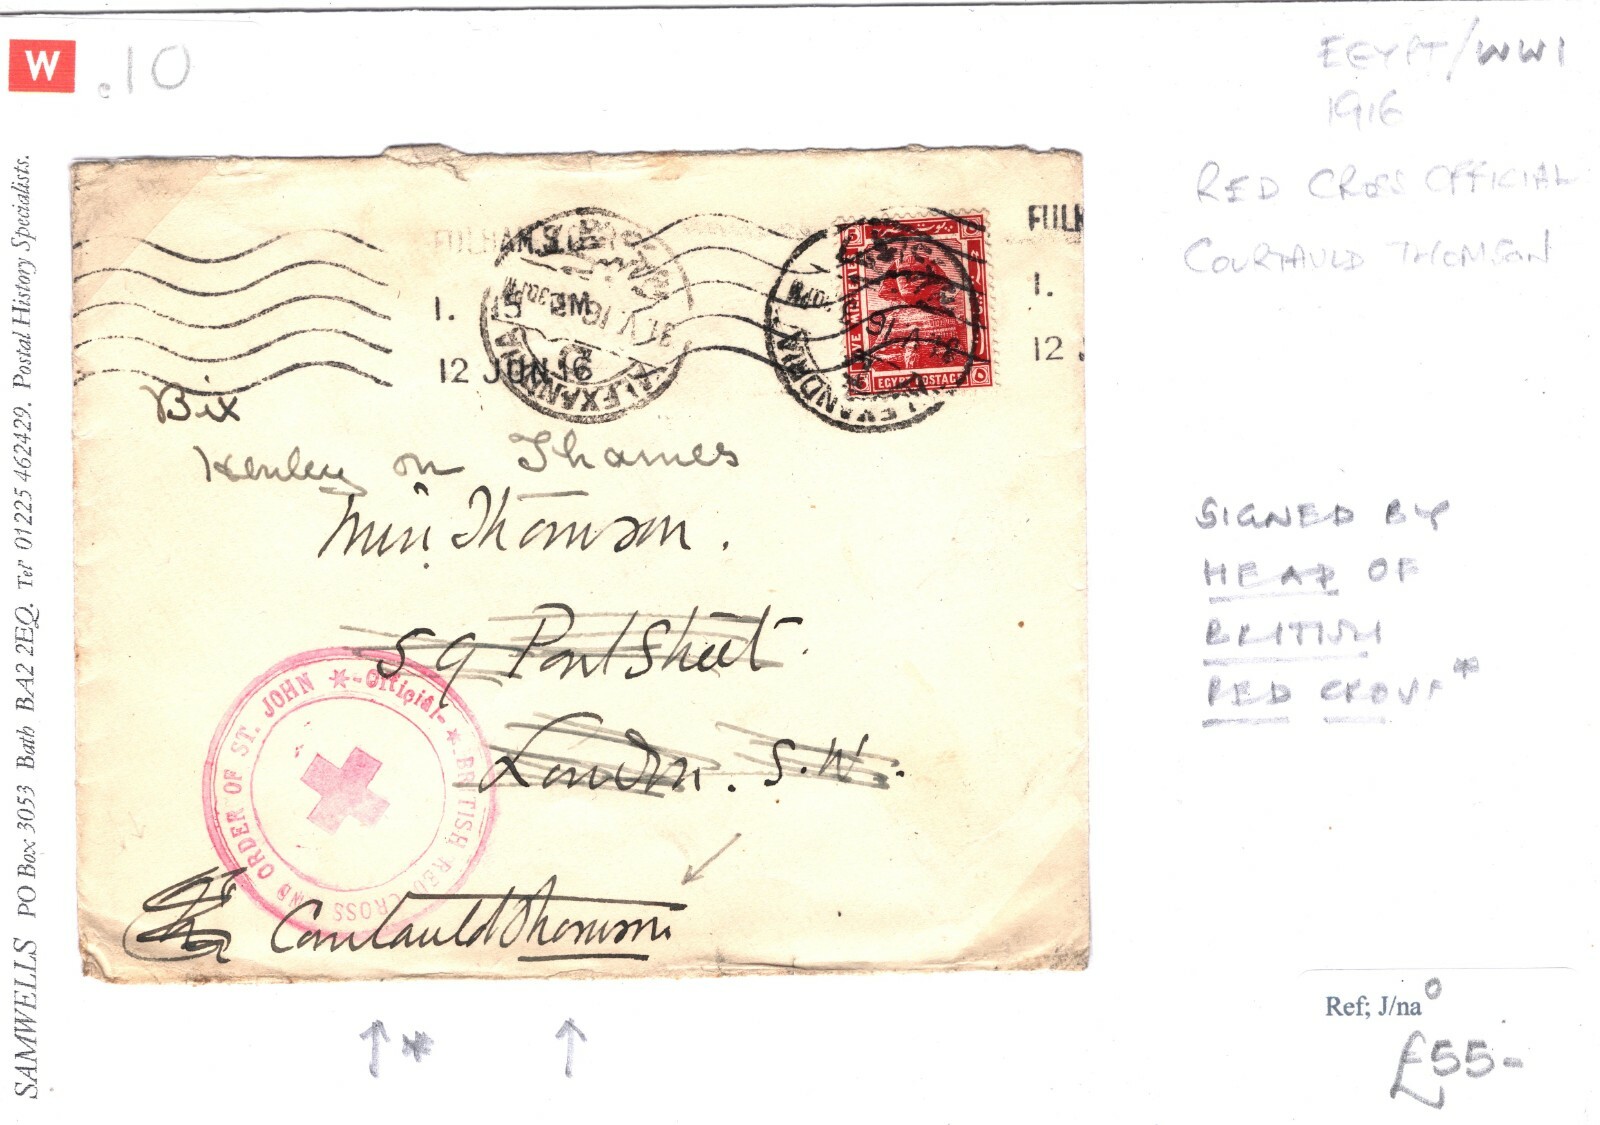 W
.10
EGYPT/WW1
1916
RED CROSS OFFICIAL
COURTAULD THOMSON
SIGNED BY
HEAD OF
BRITISH
RED CROSS*
SAMWELLS PO Box 3053 Bath BA2 2EQ. Tel' 01225 462429. Postal History Specialists.
FULHAM.S.
1.
12 JUN 16
ALEXANDRIA
31 V 16
ALEXANDRIA
31 V 16
EGYPT POSTAGE
FULH
1.
12 J
Bix
Henley on Thames
Miss Thomson.
59 Pont Street.
London. S.W.
-Official- * BRITISH RED CROSS AND ORDER OF ST. JOHN *
Courtauld Thomson
*
Ref; J/na
£55-